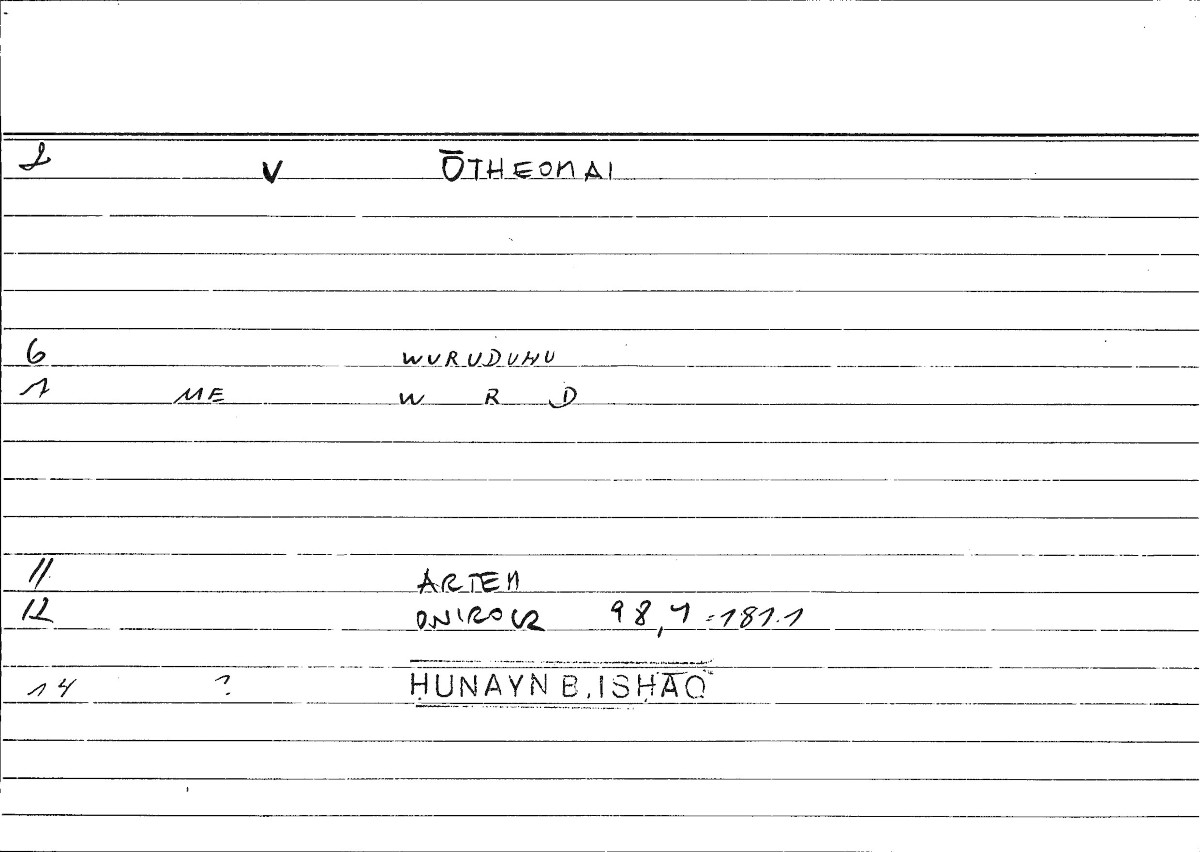 2 V ŌTHEOMAI
6 WURUDUHU
7 ME W R D
11 ARTEM
12 ONIROCR 98,7=181.1
14 ? ḤUNAYN B. ISḤĀQ